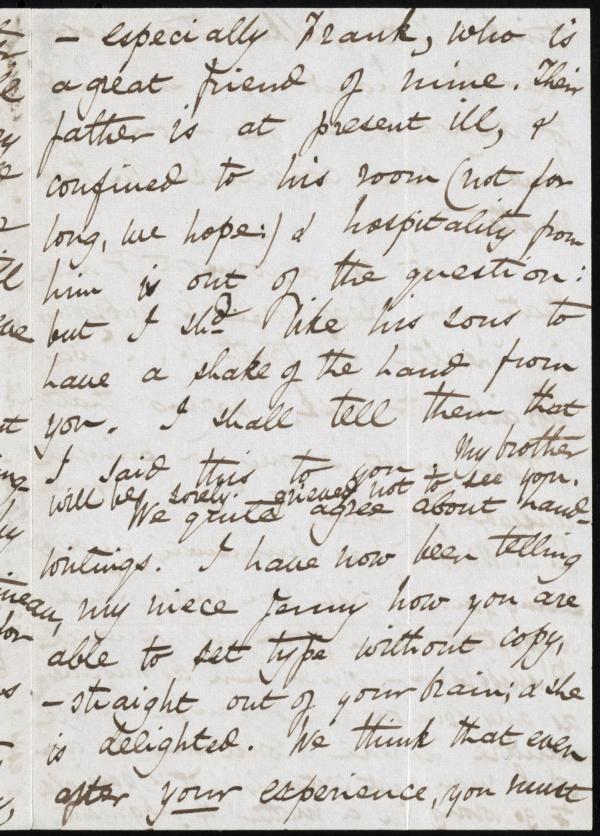 – especially Frank, who is
a great friend of mine. Their
father is at present ill, &
confined to his room (not for
long, we hope:) & hospitality from
him is out of the question:
but I shd. like his sons to
have a shake of the hand from
you. I shall tell them that
I said this to you. My brother
will be sorely grieved not to see you.
We quite agree about hand-
writings. I have now been telling
my niece Jenny how you are
able to set type without copy,
– straight out of your brain; & she
is delighted. We think that even
after your experience, you must